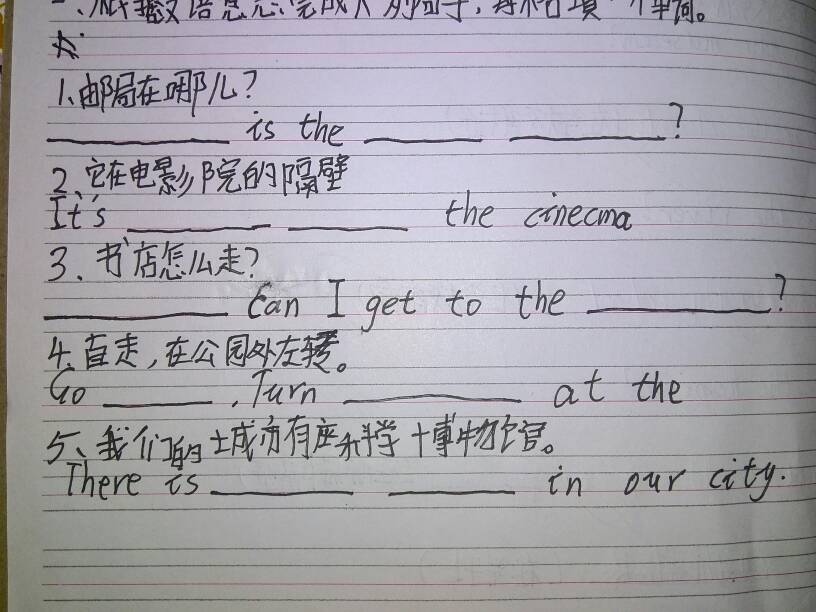 一、根据汉语意思,完成下列句子,每格填一个单词。
1、邮局在哪儿?
is the ?
2、它在电影院的隔壁
It's the cinecma
3、书店怎么走?
Can I get to the ?
4、直走,在公园外左转。
Go , Turn at the
5、我们的城市有座科学博物馆。
There is in our city.